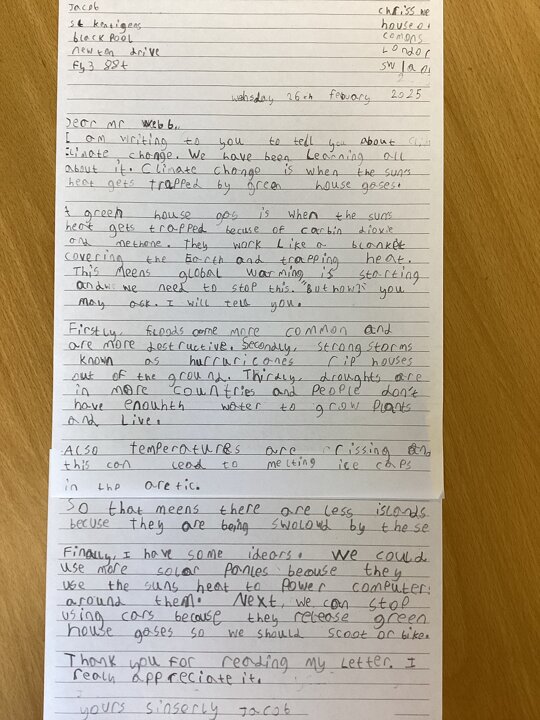 Jacob
chriss we
st kentigens
house o
blackpool
comons
newton drive
Londor
Fy3 88t
sw1a
wehsday 26th febuary 2025
Dear mr webb,
I am writing to you to tell you about
climate change. We have been Learning all
about it. Climate change is when the suns
heat gets trapped by green house gases.
A green house gas is when the suns
heat gets trapped becuse of carbin dioxie
and methene. They work Like a blanket
covering the Earth and trapping heat.
This means global warming is starting
and we need to stop this. "But how?" you
may ask. I will tell you.
Firstly, floods come more common and
are more destructive. Secondly, strong storms
known as hurruricanes rip houses
out of the ground. Thirdly, droughts are
in more countries and people don't
have enouhth water to grow plants
and Live.
Also temperatures are rrissing and
this can lead to melting ice caps
in the arctic.
So that means there are less islands
becuse they are being swolowd by the se
Finally, I have some idears. We could
use more solar panles because they
use the suns heat to power computer
around them. Next, we can stop
using cars because they release green
house gases so we should scoot or bike.
Thank you for reading my Letter. I
realy appreciate it.
yours sinserly Jacob